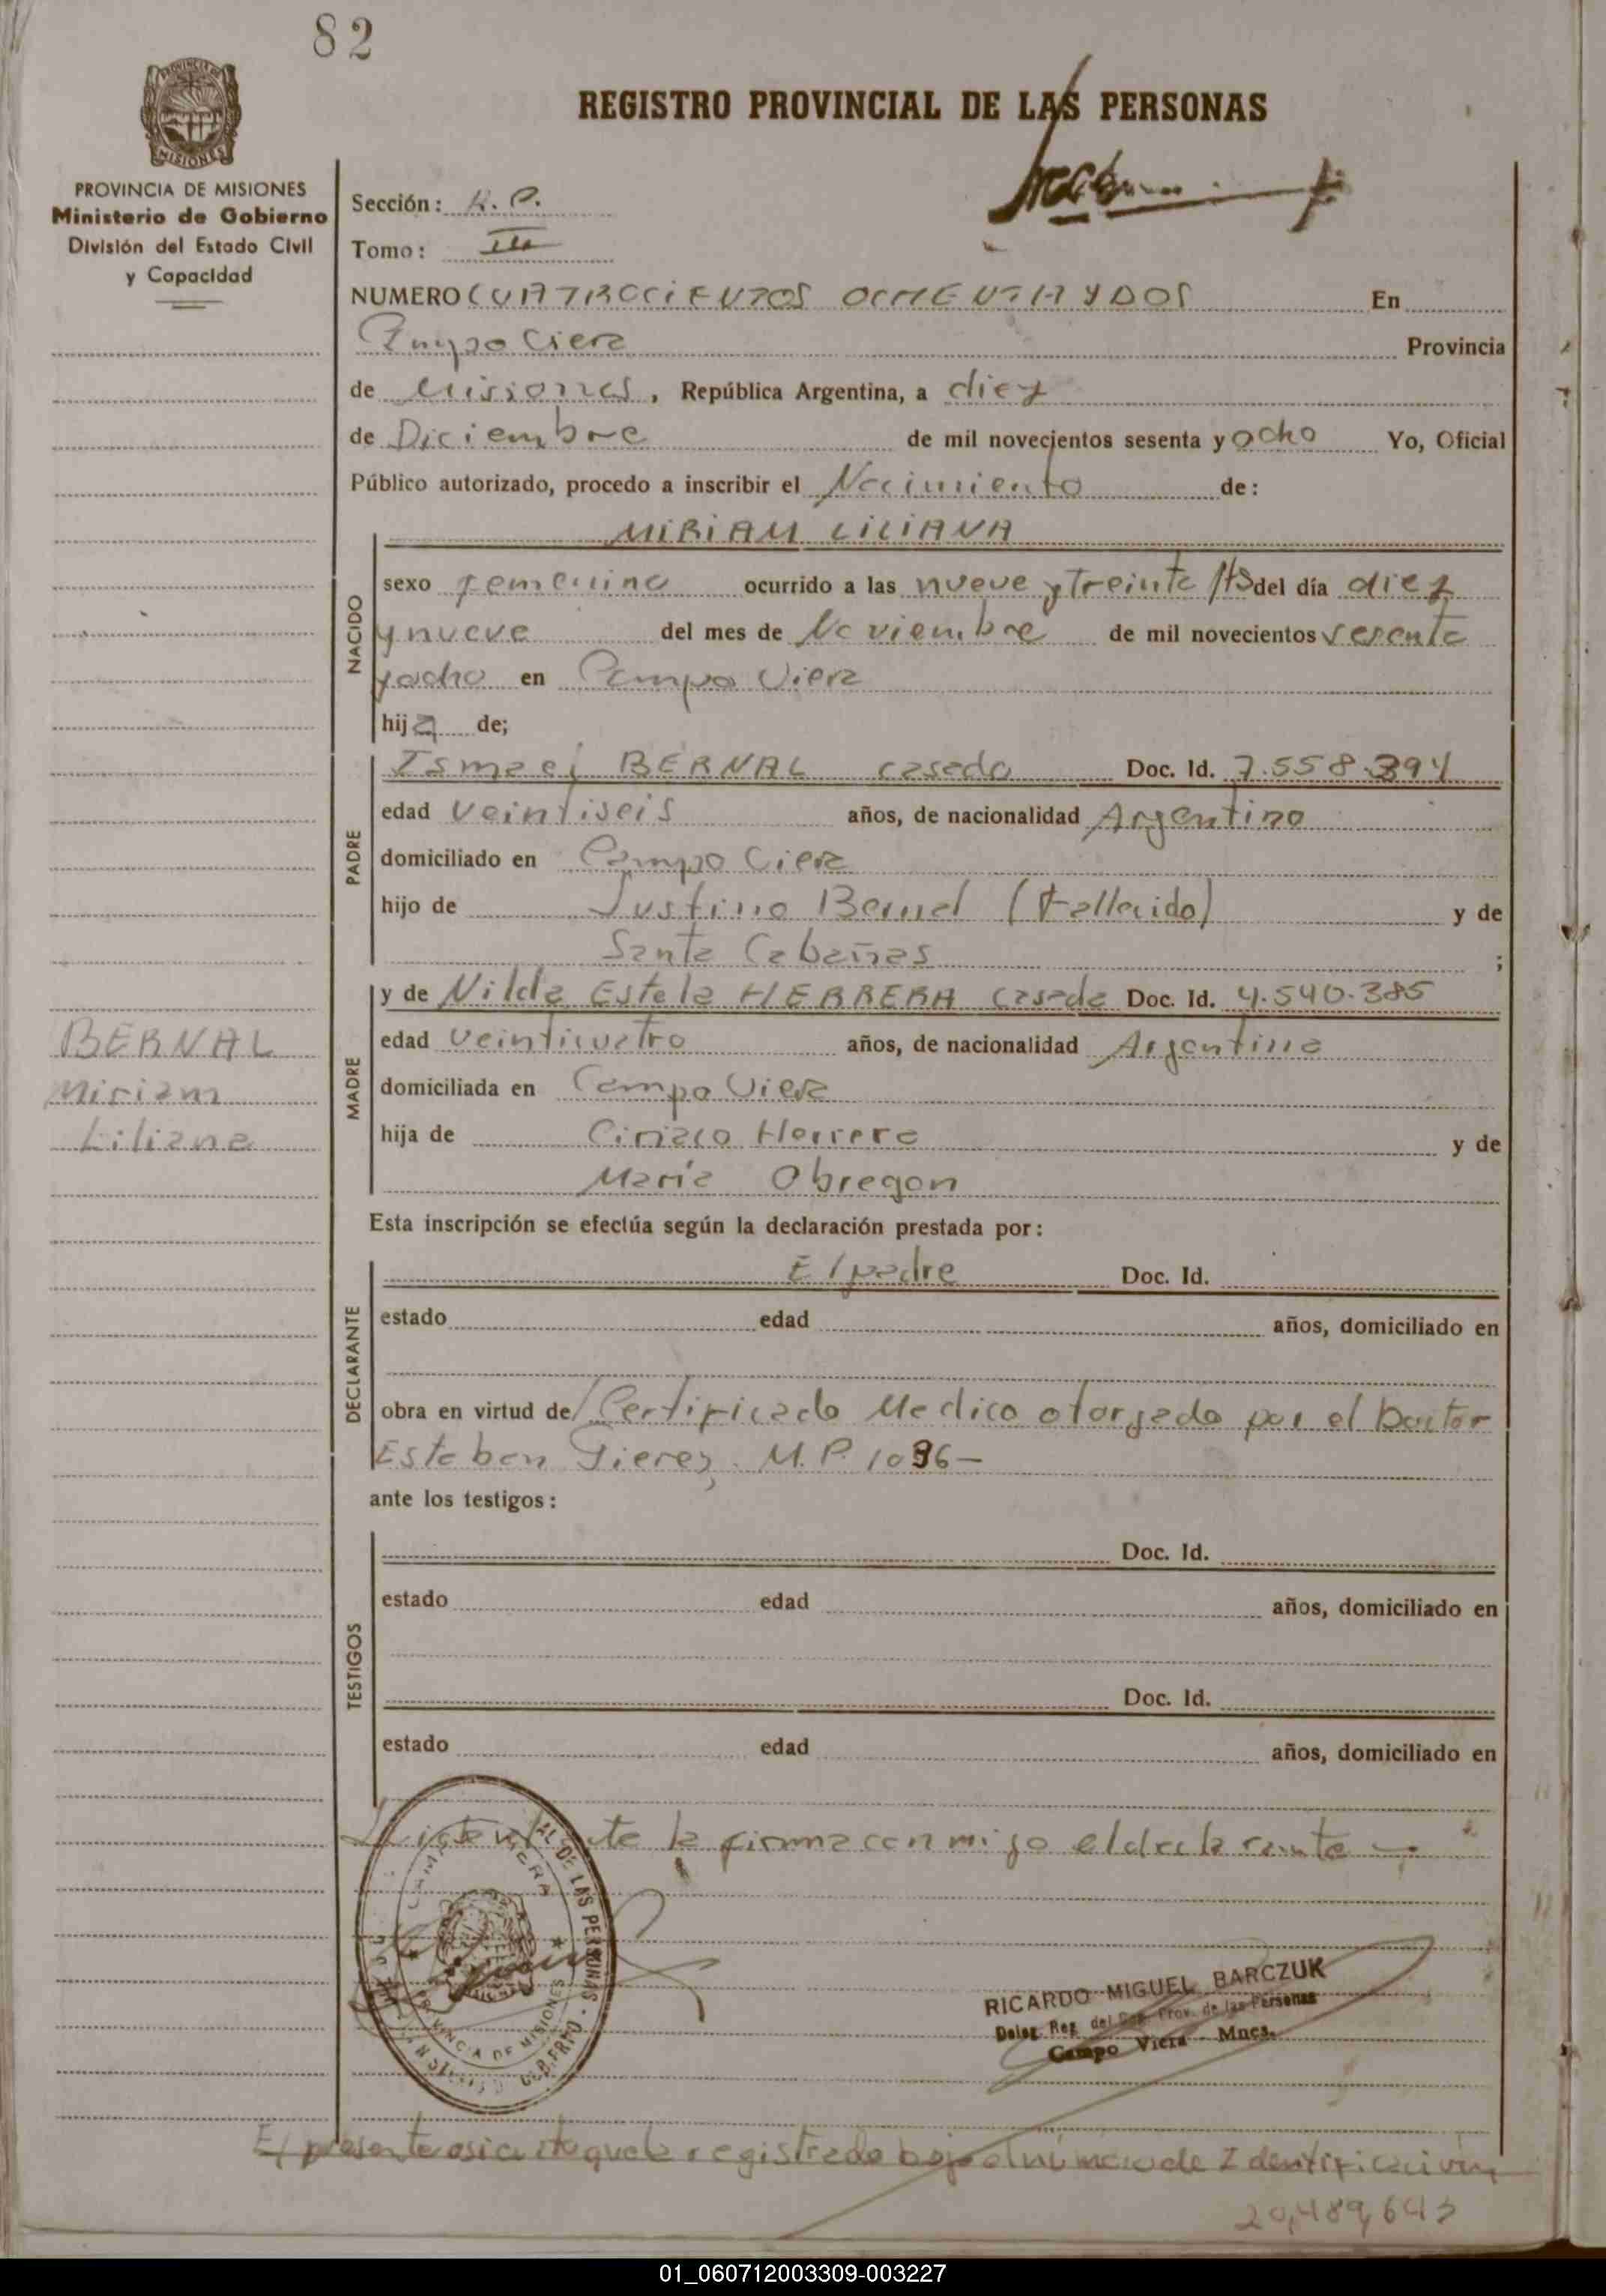 82
REGISTRO PROVINCIAL DE LAS PERSONAS
PROVINCIA DE MISIONES
Ministerio de Gobierno
División del Estado Civil
y Capacidad
Sección:
Tomo: III
NUMERO CUATROCIENTOS OCHENTA Y DOS En
Campo Viera Provincia
de Misiones, República Argentina, a diez
de Diciembre de mil novecientos sesenta y ocho Yo, Oficial
Público autorizado, procedo a inscribir el Nacimiento de:
NACIDO
MIRIAM LILIANA
sexo femenino ocurrido a las nueve y Treinta Hs del día diez
y nueve del mes de Noviembre de mil novecientos sesenta
y ocho en Campo Viera
hija de;
PADRE
Ismael BERNAL casado Doc. Id. 7.558.394
edad veintiseis años, de nacionalidad Argentino
domiciliado en Campo Viera
hijo de Justino Bernal (Fallecido) y de
Santa Cabañas ;
MADRE
y de Nilda Estela HERRERA casada Doc. Id. 4.540.385
edad veinticuatro años, de nacionalidad Argentina
domiciliada en Campo Viera
hija de Ciriaco Herrera y de
Maria Obregon
BERNAL
Miriam
Liliana
Esta inscripción se efectúa según la declaración prestada por:
DECLARANTE
El padre Doc. Id.
estado edad años, domiciliado en
obra en virtud de Certificado Medico otorgado por el Doctor
Esteban M.P. 1096-
ante los testigos:
TESTIGOS
Doc. Id.
estado edad años, domiciliado en
Doc. Id.
estado edad años, domiciliado en
la firma conmigo el declarante -
CAMPO VIERA
AL DE LAS PERSONAS
PROVINCIA DE MISIONES
RICARDO MIGUEL BARCZUK
Deleg. Reg. del Prov. de las Personas
Campo Viera - Mnes.
El presente asiento queda registrado bajo el número de Identificación
20,489,643
01_060712003309-003227